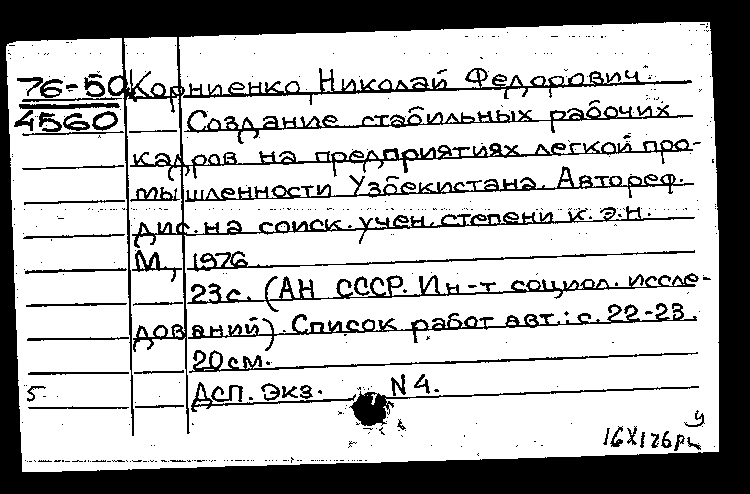 76-50 Корниенко, Николай Федорович.
4560 Создание стабильных рабочих
кадров на предприятиях легкой про-
мышленности Узбекистана. Автореф.
дис. на соиск. учен. степени к.э.н.
М., 1976
23с. (АН СССР. Ин-т социол. иссле-
дований). Список работ авт.: с. 22-23.
20см.
5 Дсп. Экз. N4.